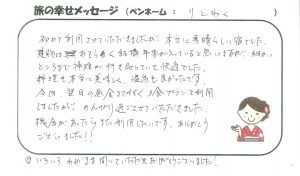 旅の幸せメッセージ（ペンネーム：りとわく）
初めて利用させていただきましたが、本当に素晴らしい宿でした。
建物は おそらく結構年季が入っていると思いますが、細かい
ところまで掃除が行き届いていて快適でした。
料理も本当に美味しく、温泉も良かったです。
今回、翌日の昼食までつく 3食プランで利用
しましたが、のんびり過ごさせていただきました。
機会があったらまた利用したいです。ありがとう
ございました!!
いろいろ わがままを聞いていただきありがとうございました!